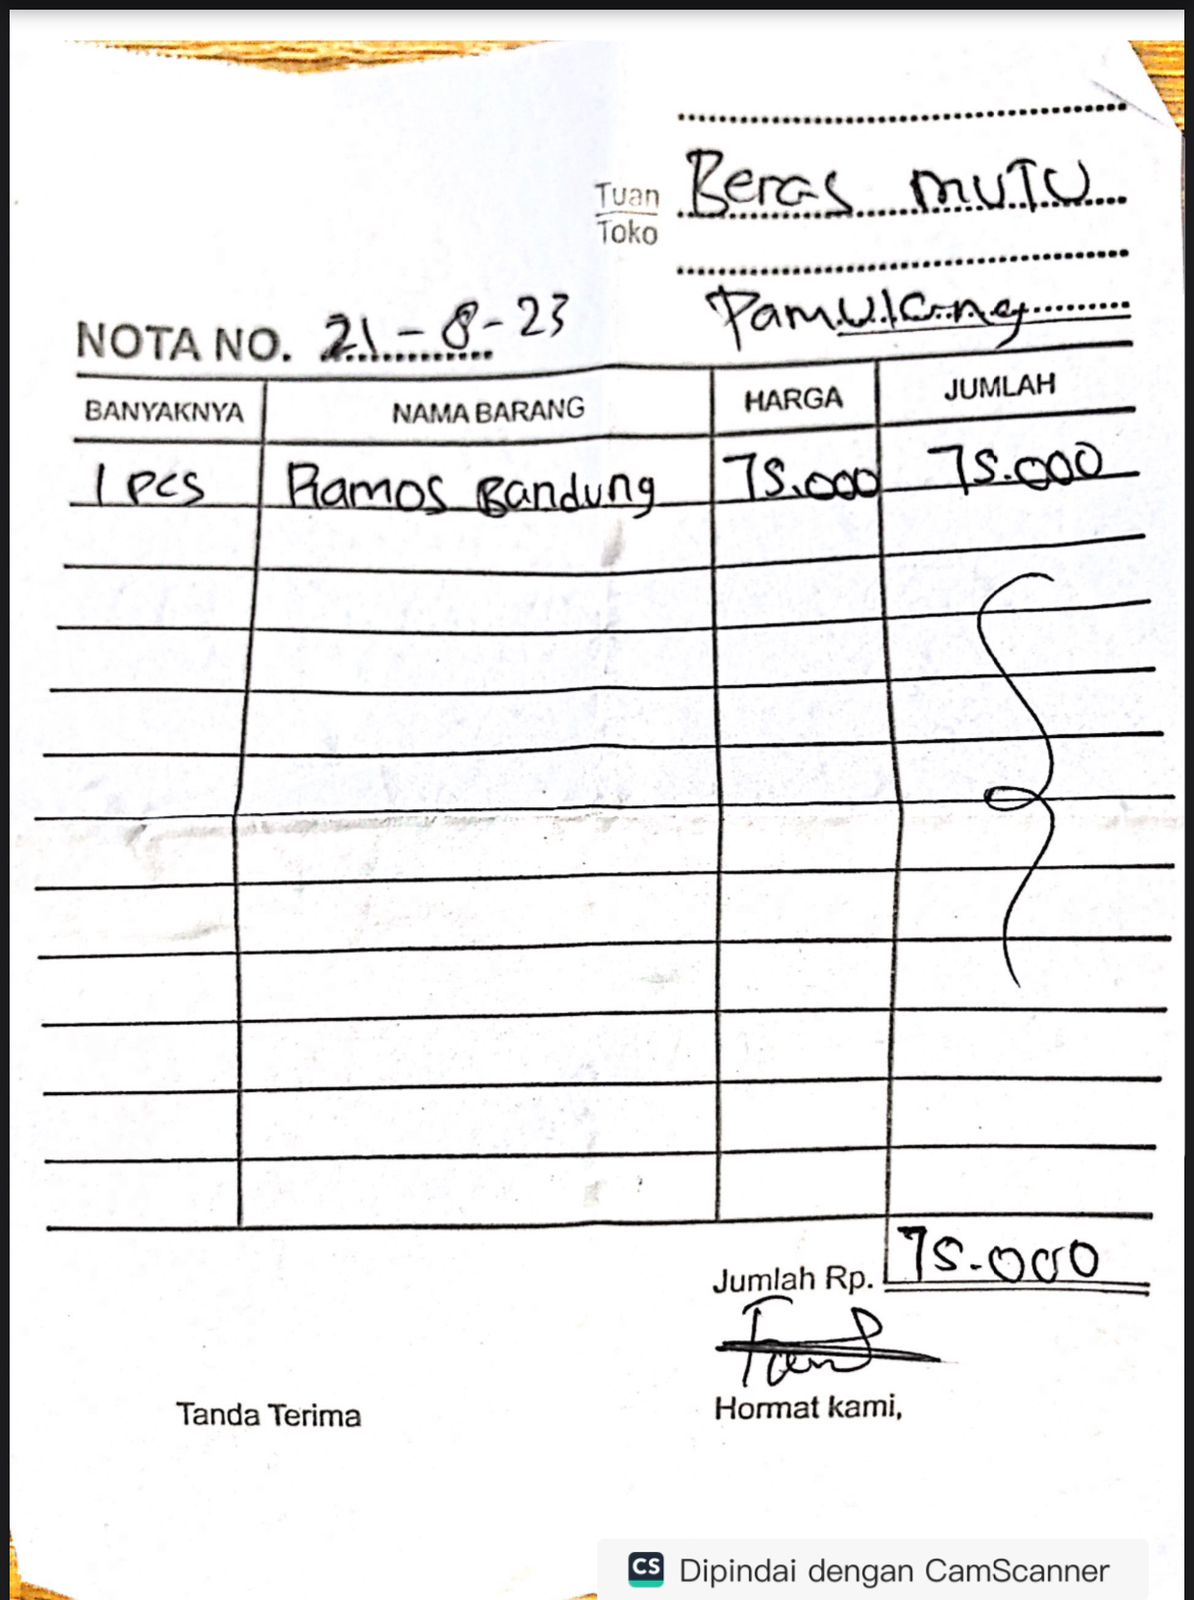 Beras MUTU
Tuan
Toko
Pamulang
NOTA NO. 21-8-23
BANYAKNYA NAMA BARANG HARGA JUMLAH
1 PCS Ramos Bandung 75.000 75.000
Jumlah Rp. 75.000
Tanda Terima Hormat kami,
CS Dipindai dengan CamScanner